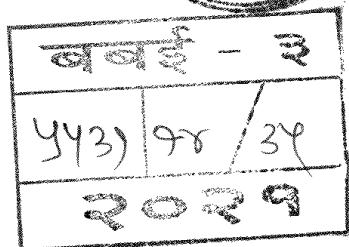 बबई - ३
५५३१ १४ / ३५
२०२१